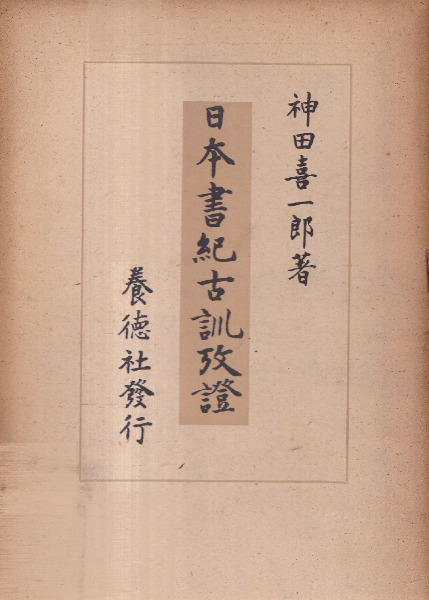 神田喜一郎著
日本書紀古訓攷證
養徳社發行